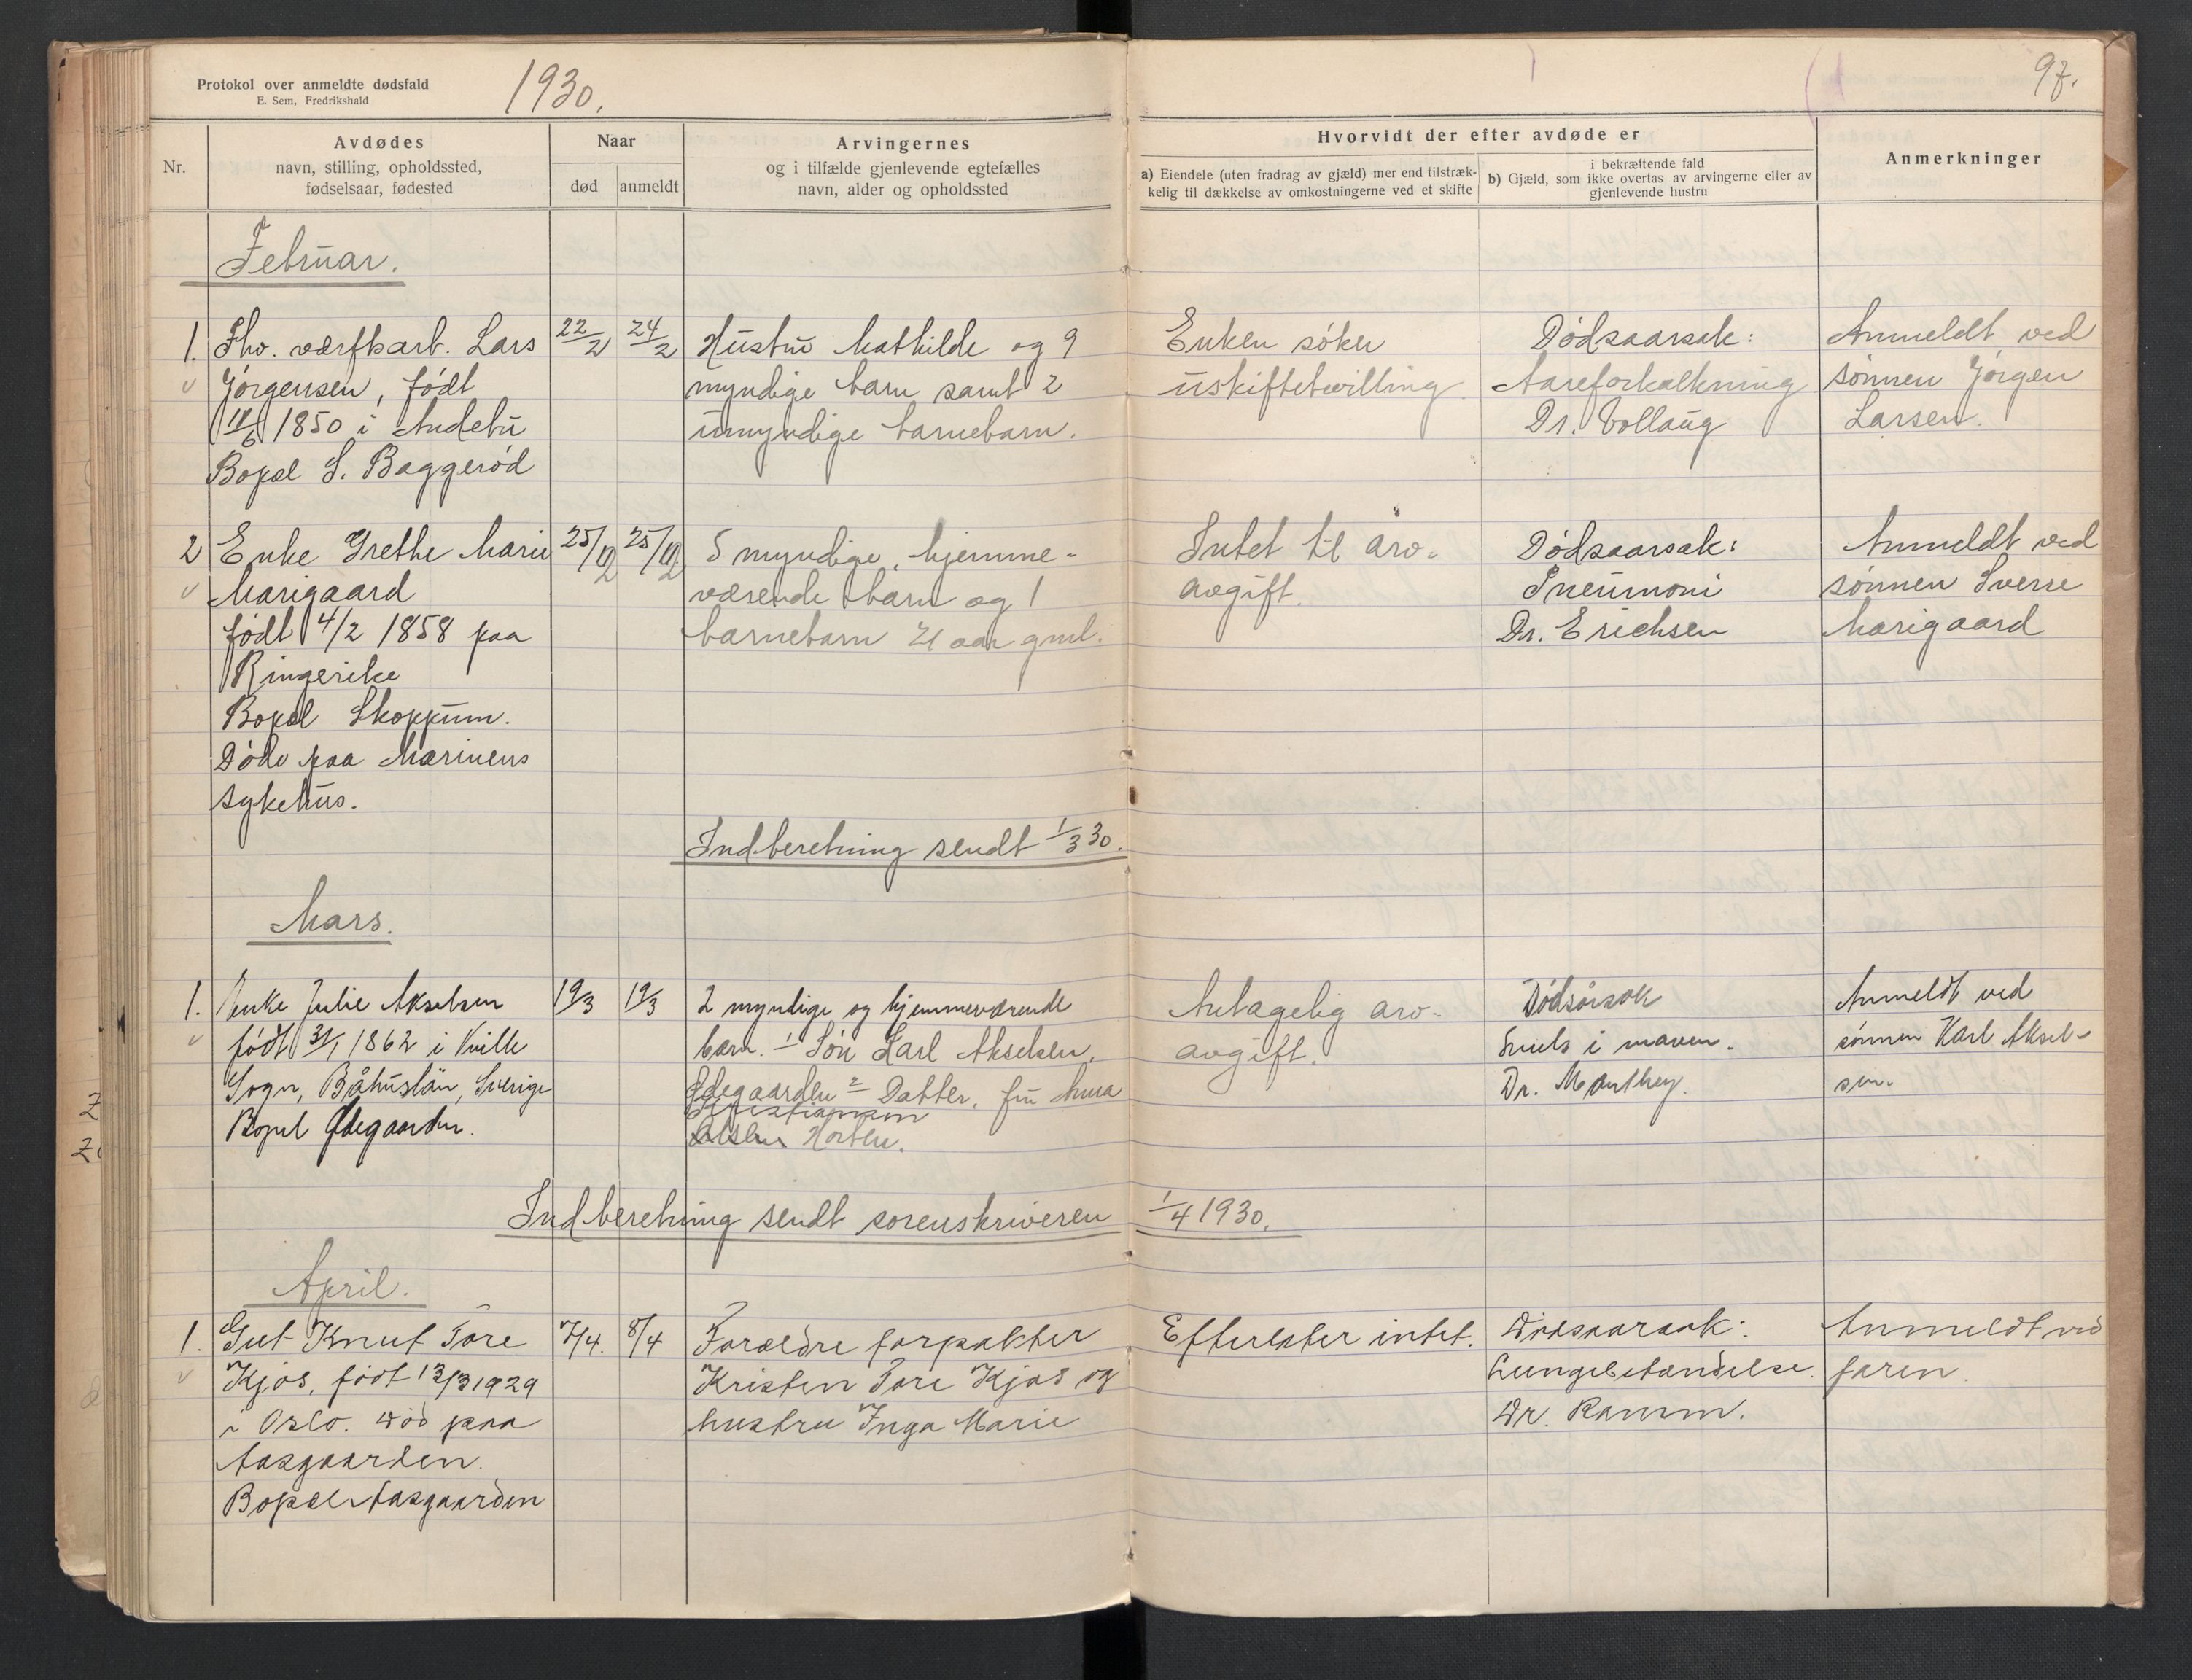 Protokol over anmeldte dødsfald
E. Sem, Fredrikshald
1930.
97.
Nr.
Avdødes
navn, stilling, opholdssted,
fødselsaar, fødested
Naar
død
anmeldt
Arvingernes
og i tilfælde gjenlevende egtefælles
navn, alder og opholdssted
Hvorvidt der efter avdøde er
a) Eiendele (uten fradrag av gjæld) mer end tilstræk-
kelig til dækkelse av omkostningerne ved et skifte
i bekræftende fald
b) Gjæld, som ikke overtas av arvingerne eller av
gjenlevende hustru
Anmerkninger
Februar.
1. Fhv. værftsarb. Lars
Jørgensen, født
11/6 1850 i Andebu
Bopæl S. Baggerød
22/2
24/2
Hustru Mathilde og 9
myndige barn samt 2
umyndige barnebarn.
Enken søker
uskiftetbevilling
Dødsaarsak:
Aareforkalkning
Dr. Vollaug
Anmeldt ved
sønnen Jørgen
Larsen.
2 Enke Grethe Marie
Marigaard
født 4/2 1858 paa
Ringerike
Bopæl Skoppum.
Døde paa Marinens
sykehus.
25/2
25/2
5 myndige, hjemme-
værende barn og 1
barnebarn 21 aar gml.
Intet til arv-
avgift.
Dødsaarsak:
Pneumoni
Dr. Erichsen
Anmeldt ved
sønnen Sverre
Marigaard
Indberetning sendt 1/3 30.
Mars.
1. Enke Julie Akselsen
født 31/1 1862 i Kville
Sogn, Båhuslän, Sverige
Bopæl Ødegaarden.
19/3
19/3
2 myndige og hjemmeværende
barn. 1 Søn Karl Akselsen,
Ødegaarden 2 Datter, fru Anna
Kristiansen
Horten.
Antagelig arv-
avgift.
Dødsårsak
Kreft i maven.
Dr. Manthey.
Anmeldt ved
sønnen Karl Aksel-
sen.
Indberetning sendt sorenskriveren 1/4 1930.
April.
1. Gut Knut Tore
Kjos, født 13/3 1929
i Oslo. Død paa
Aasgaarden.
Bopæl Aasgaarden
7/4.
8/4
Foræeldre forpakter
Kristen Tore Kjos og
hustru Inga Marie
Efterlater intet.
Dødsaarsak:
Lungebetændelse.
Dr. Ramm.
Anmeldt ved
faren.